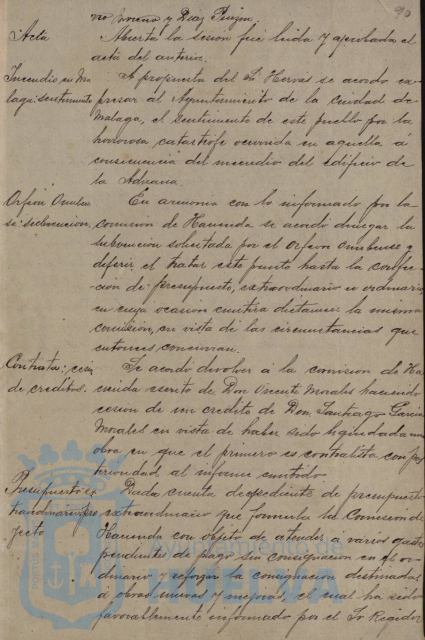 rio Moreno y Diaz Puijon. 90
Acta Abierta la sesion fué leida y aprobada el
acta del anterior.
Incendio en Ma A propuesta del Sr. Hervas se acordó ex
laga: sentimiento presar al Ayuntamiento de la ciudad de
Málaga, el sentimiento de este pueblo por la
horrorosa catastrofe ocurrida en aquella á
consecuencia del incendio del edificio de
la Aduana.
Orfeon Onuben En armonia con lo informado por la
se: subvencion. comision de Hacienda se acordó denegar la
subvencion solicitada por el Orfeon Onubense y
diferir el tratar este punto hasta la confec
cion de presupuesto, extraordinario u ordinario
en cuya ocasion emitirá dictamen la misma
comision, en vista de las circunstancias que
entonces concurran.
Contratas: cesion Se acordó devolver á la comision de Ha
de creditos. cienda escrito de Don Vicente Morales haciendo
cesion de un credito de Don Santiago Garcia
Morales en vista de haber sido liquidada una
obra en que el primero es contratista con pos
terioridad al informe emitido.
Presupuesto ex Dada cuenta de expediente de presupuesto
traordinario: pro extraordinario que formula la Comision de
yecto Hacienda con objeto de atender a varios gastos
pendientes de pago sin consignacion en el or
dinario y reforzar la consignacion destinada
á obras nuevas y mejoras, el cual ha sido
favorablemente informado por el Sr. Regidor